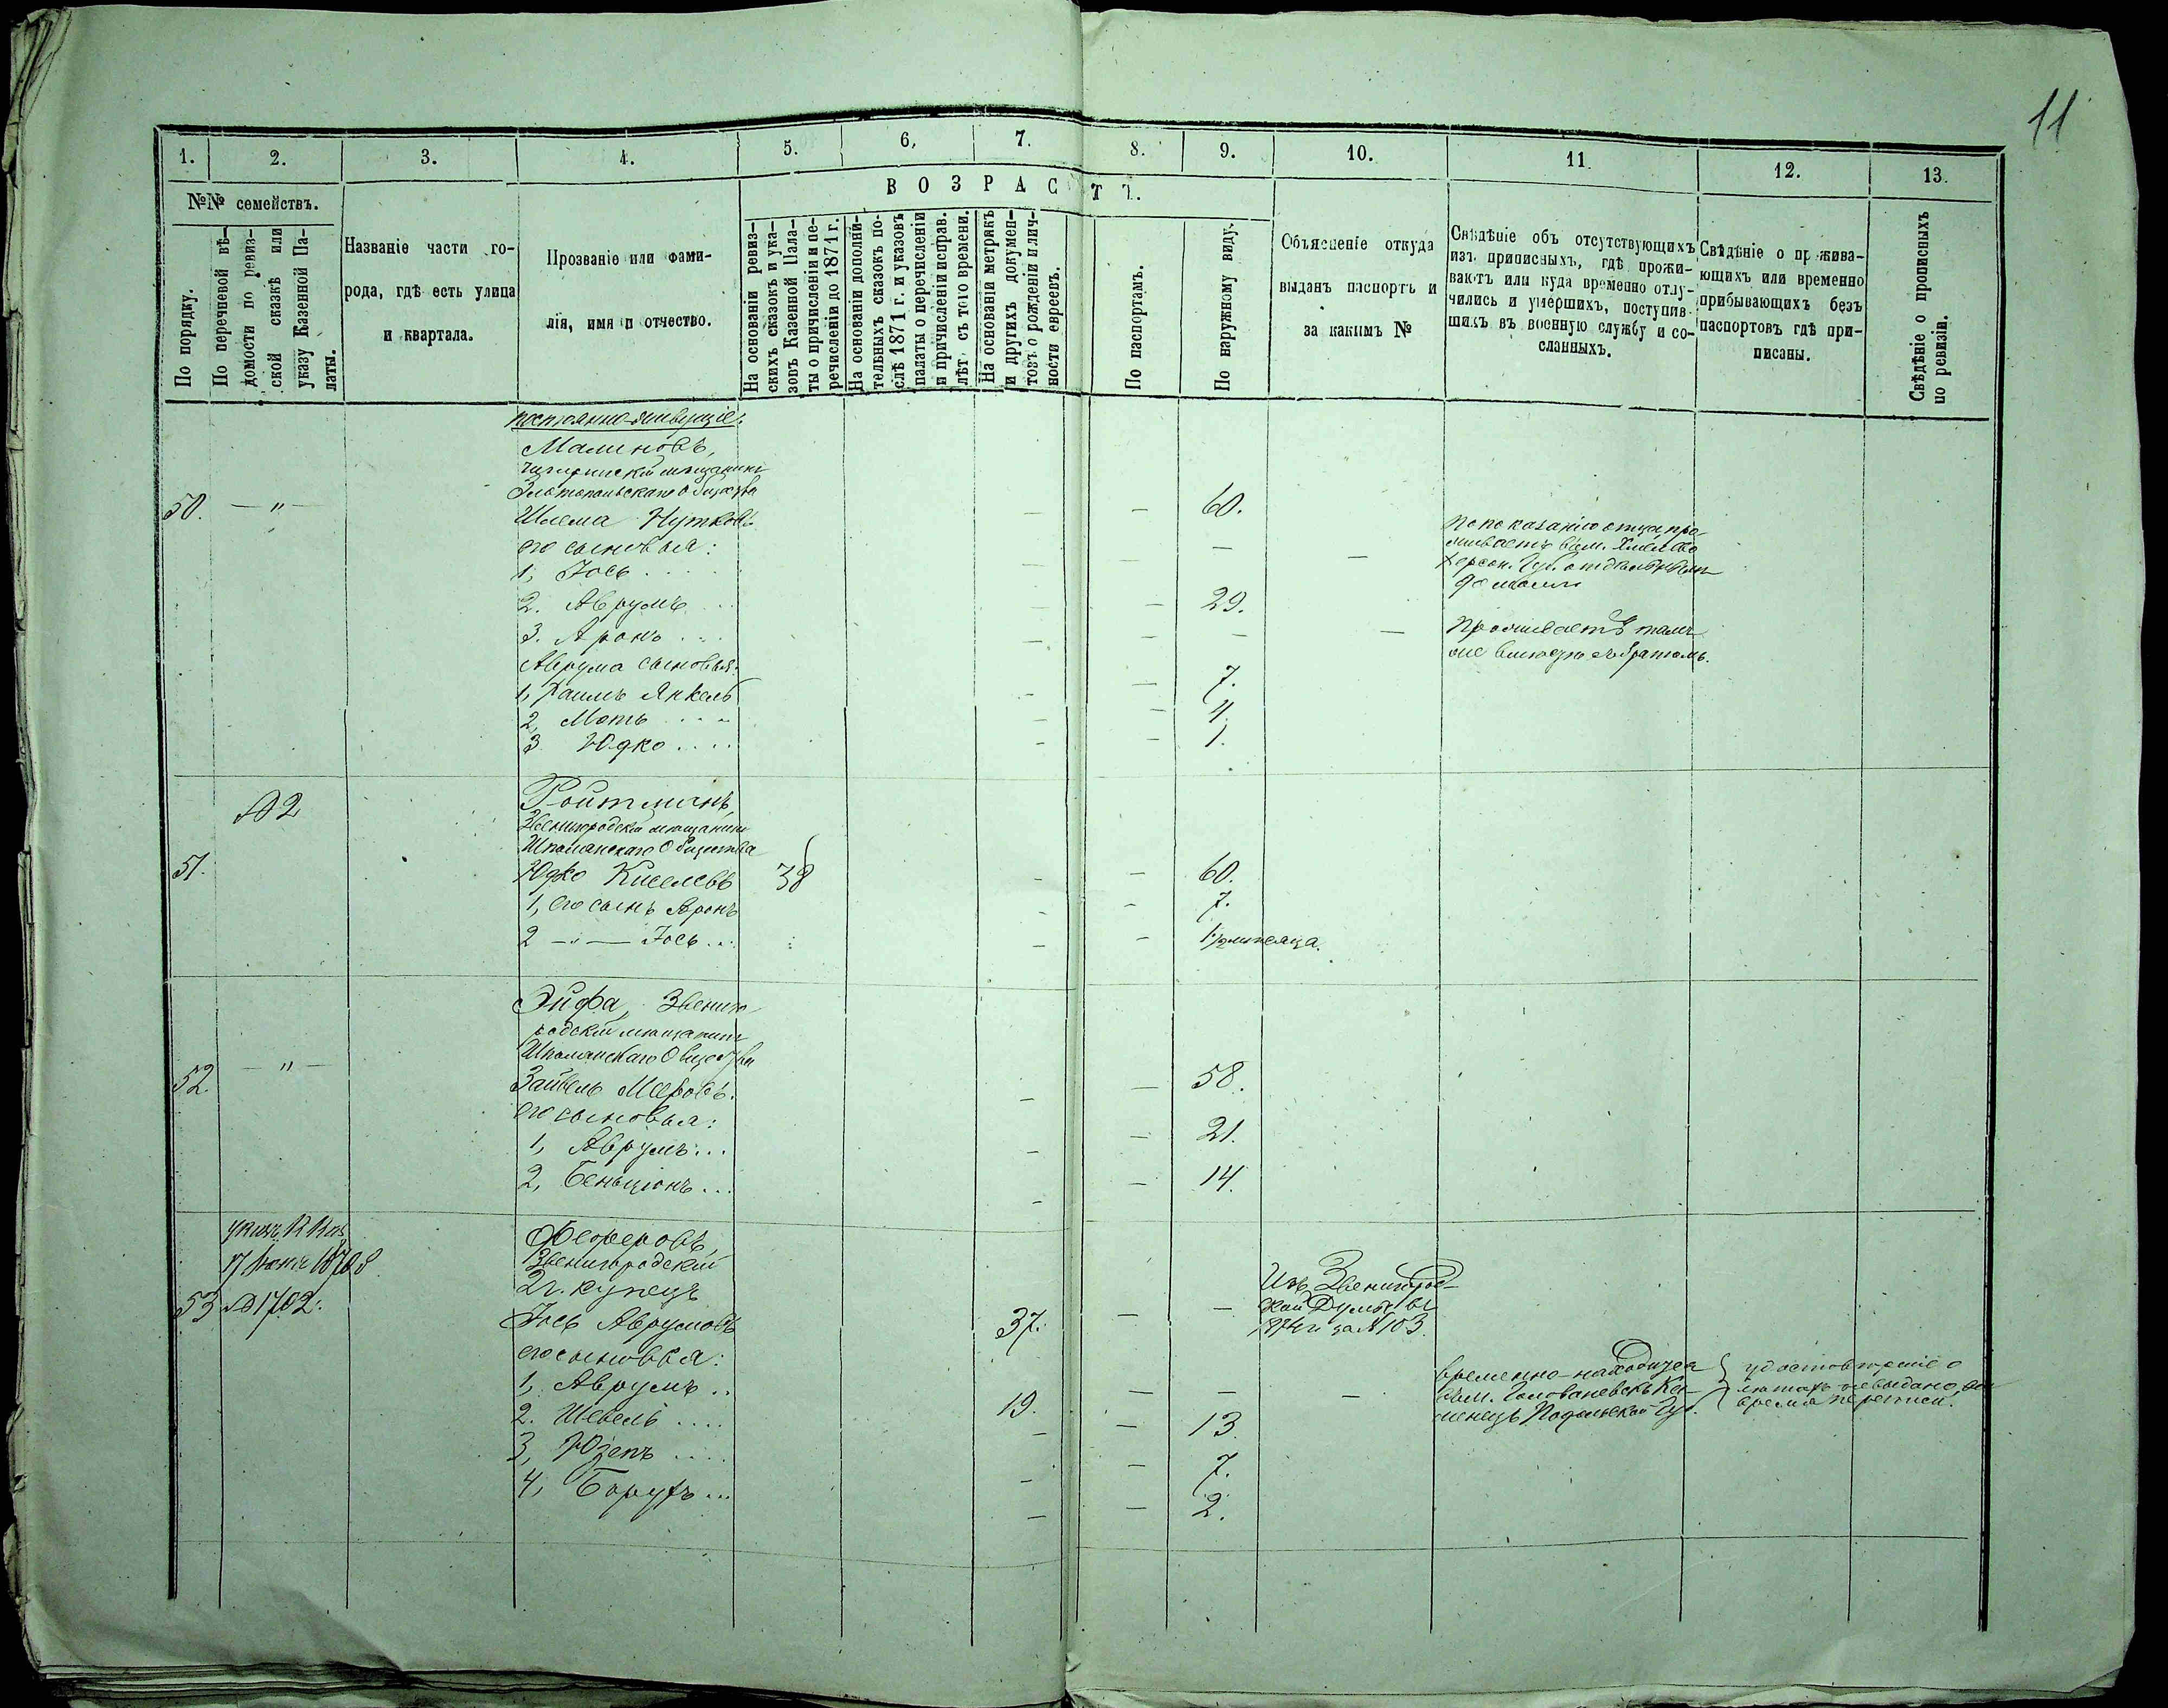 11
1.
2.
3.
4.
5.
6.
7.
8.
9.
10.
11
12.
13.
№№ семействъ.
По порядку.
По перечневой вѣ-
домости по ревиз-
ской сказкѣ или
указу Казенной Па-
латы.
Названіе части го-
рода, гдѣ есть улица
и квартала.
Прозваніе или фами-
лія, имя и отчество.
ВОЗРАСТЪ.
На основаніи ревиз-
скихъ сказокъ и ука-
зовъ Казенной Пала-
ты о причисленіи и пе-
речисленіи до 1871 г.
На основаніи дополни-
тельныхъ сказокъ по-
слѣ 1871 г. и указовъ
палаты о перечисленіи
и причисленіи исправ.
лѣт. съ того времени.
На основаніи метрикъ
и другихъ докумен-
товъ о рожденіи и лич-
ности евреевъ.
По паспортамъ.
По наружному виду.
Объясненіе откуда
выданъ паспортъ и
за какимъ №
Свѣдѣніе объ отсутствующихъ
изъ приписныхъ, гдѣ прожи-
ваютъ или куда временно отлу-
чились и умершихъ, поступив-
шихъ въ военную службу и со-
сланныхъ.
Свѣдѣніе о прожива-
ющихъ или временно
прибывающихъ безъ
паспортовъ гдѣ при-
писаны.
Свѣдѣніе о прописныхъ
по ревизіи.
постоянно-живущіе:
Малиновъ,
Чигиринскій мѣщанинъ
Златопольскаго Общества
50. — " — Шлема Нутковъ — 60.
его сыновья:
1, Іось . . . . — — —
По показанію отца про-
живаетъ въ м.
Херсон. Губ. отдѣльнымъ
домомъ
2. Аврумъ . . . — — 29.
3. Аронъ . . . — — — —
Проживаетъ тамъ
же вмѣстѣ съ братомъ.
Аврума сыновья:
1, Хаимъ Янкель — — 7.
2, Моть . . . . — — 4.
3 Юдко . . . . — — 1.
№ 2
Ройтманъ,
Звенигородскій мѣщанинъ
Шполянскаго Общества
51. Юдко Киселевъ 38 — — 60.
1, его сынъ Аронъ — — 7.
2 — " — Іось . . . — — 1½ мѣсяца.
Эйфа, Звениго-
родскій мѣщанинъ
Шполянскаго Общества
52. — " — Зайвель Меровъ. — — 58.
его сыновья:
1, Аврумъ . . . — — 21.
2, Беньціонъ . . . — — 14.
17
53 № 1702.
Феферовъ,
Звенигородскій
2 г. купецъ
Іось Аврумовъ 37. — —
Изъ Звенигород-
ской Думы въ
1874 г за № 103.
его сыновья:
1, Аврумъ . . 19. — — —
временно-находится
въ м. Голованевскъ Ка-
менецъ Подольской Губ.
время переписи.
2. Шевель . . . . — — 13.
3, Юзепъ . . . . — — 7.
4, Борухъ . . . — — 2.